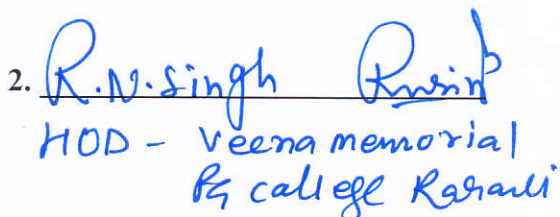 2. R.N. Singh
HOD - Veena memorial
PG callege Karauli